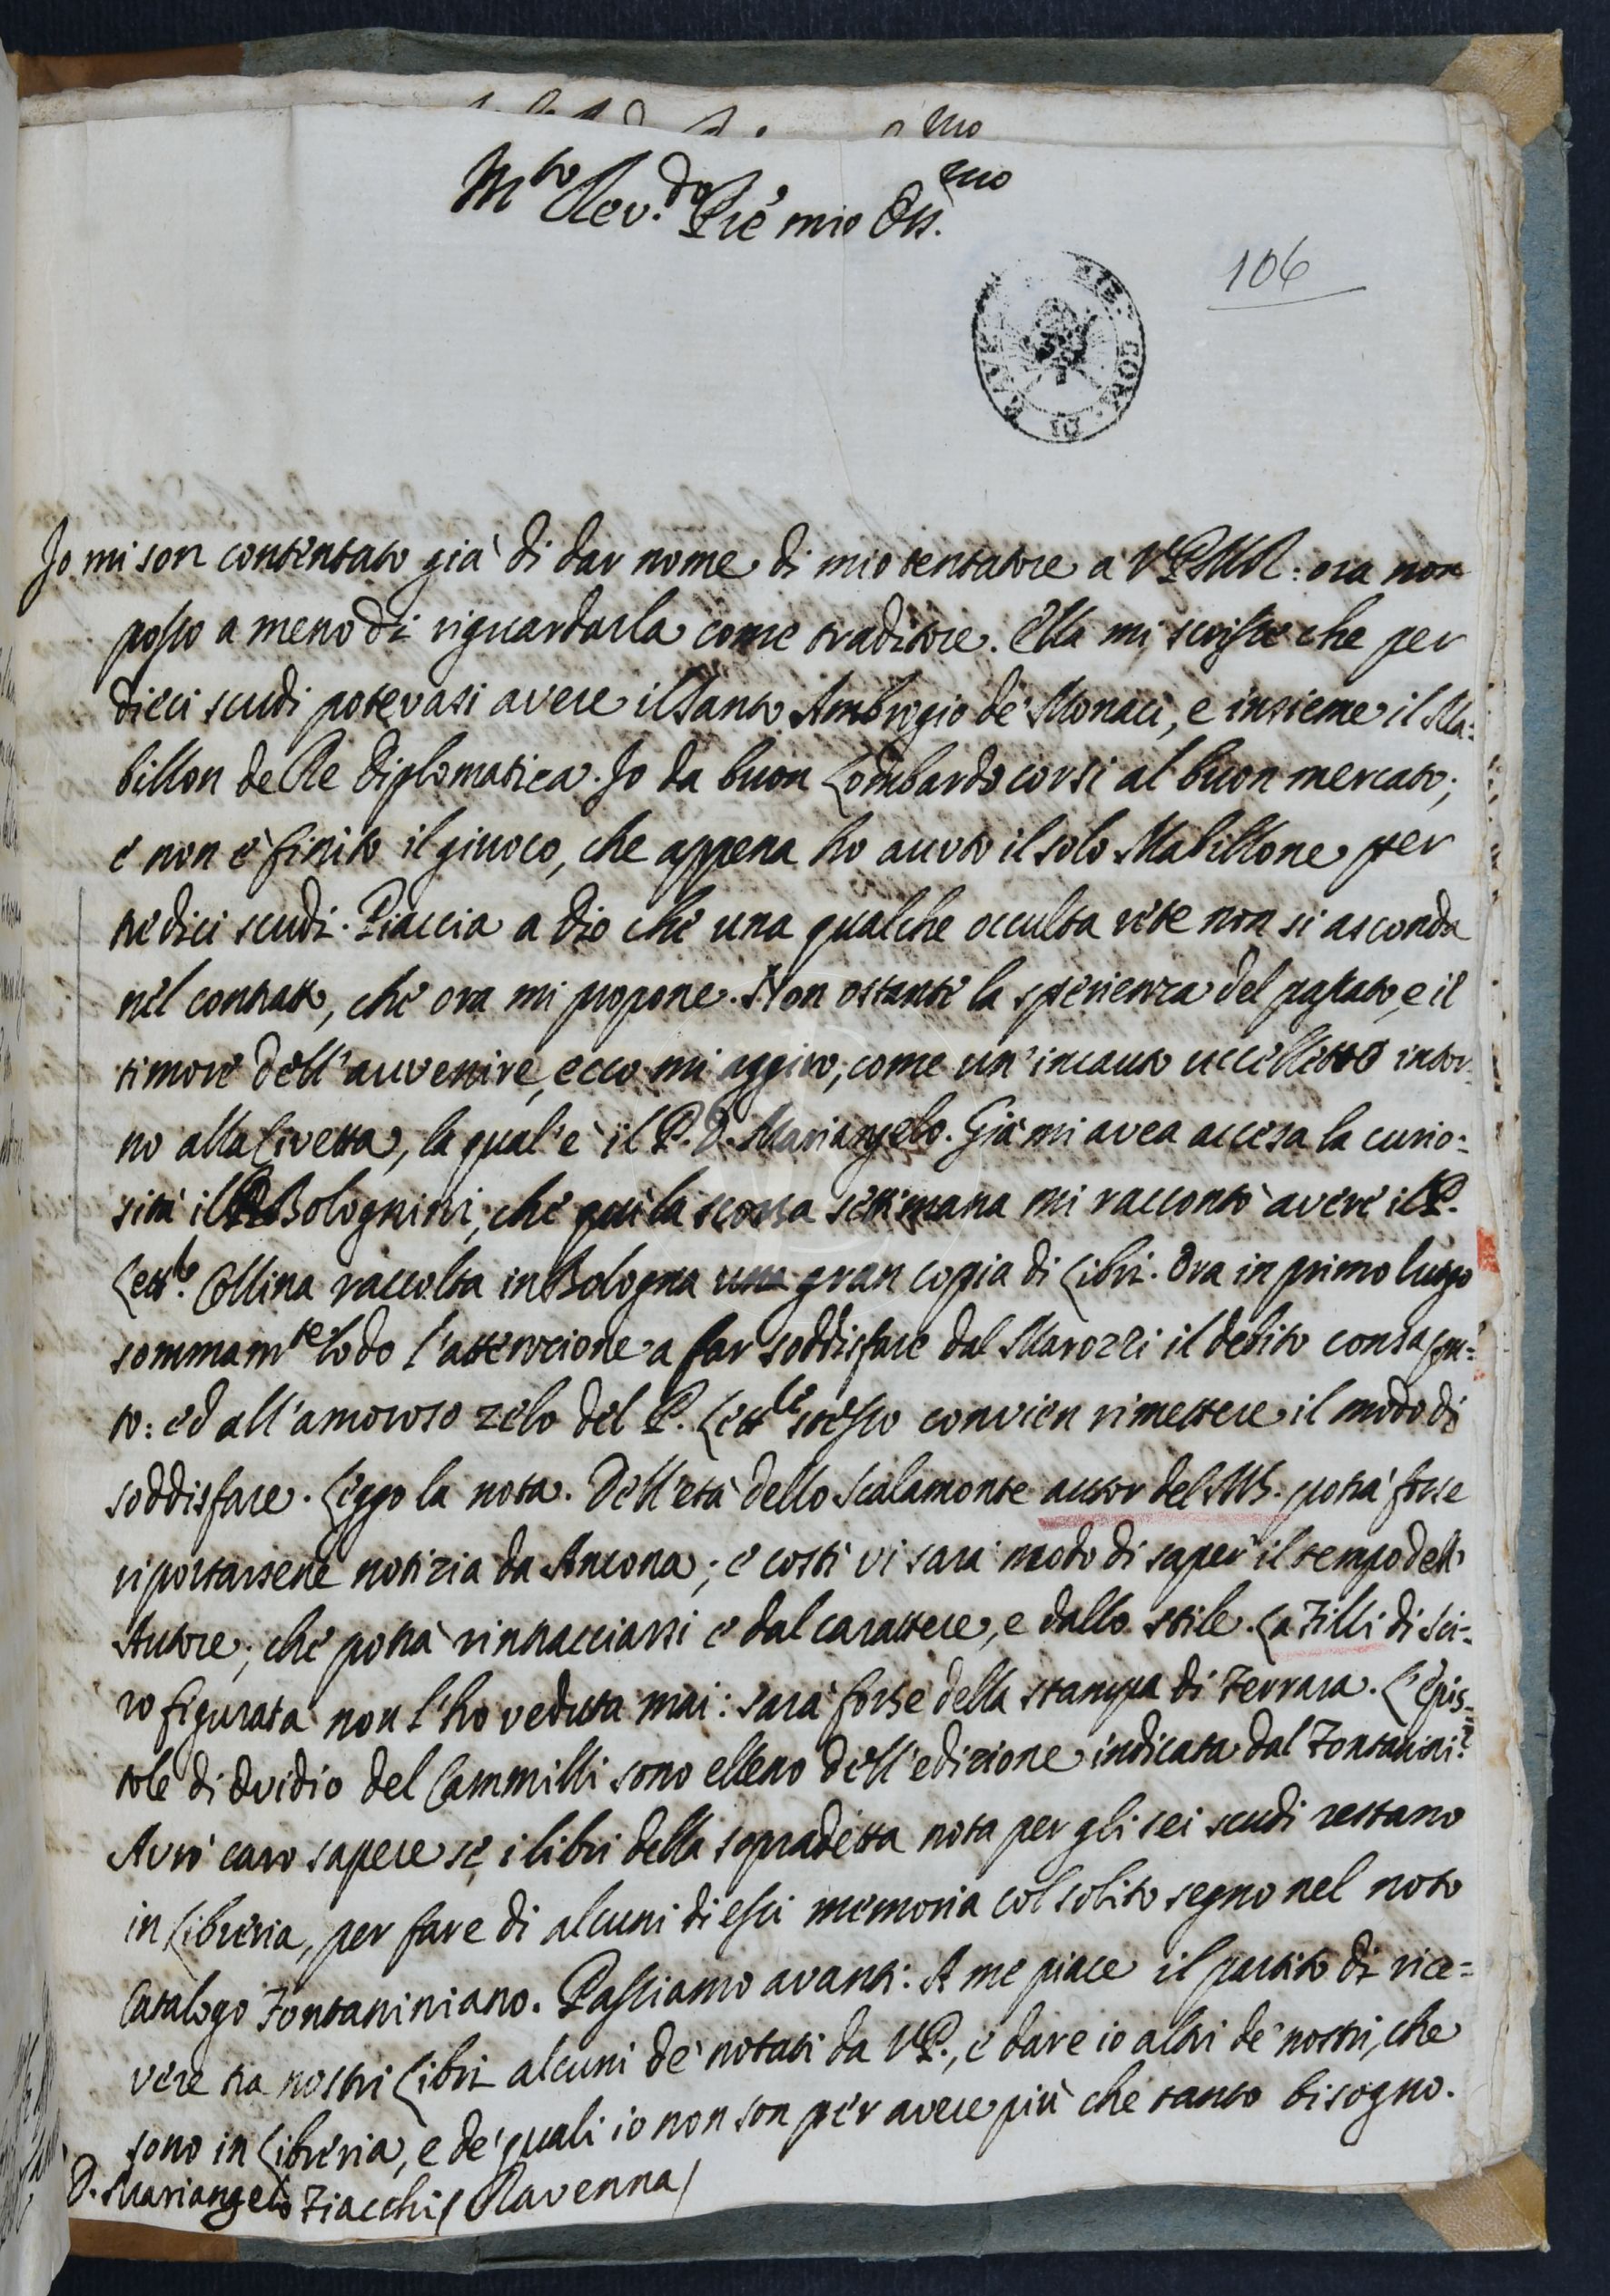 M.to Rev.do P.re mio Oss.mo
106
Io mi son contentato già di dar nome di mio tentatore a V.P.M.R.: ora non
posso a meno di riguardarla come traditore. Ella mi scrisse che per
dieci scudi potevasi avere il Santo Ambrogio de' Monaci, e insieme il Ma:
billon de Re Diplomatica. Io da buon Lombardo corsi al buon mercato;
e non è finito il giuoco, che appena ho avuto il solo Mabillone per
tredici scudi. Piaccia a Dio che una qualche occulta rete non si asconda
nel contratto, che ora mi propone. Non ostante la sperienza del passato, e il
timore dell'avvenire, ecco mi aggiro, come un'incauto uccelletto intor:
no alla Civetta, la qual'è il P. D. Mariangelo. Già mi avea accesa la curio:
sità il P. Bolognini, che quì la scorsa settimana mi raccontò avere il P.
Lett.e Collina raccolta in Bologna una gran copia di Libri. Ora in primo luogo
sommam.te lodo l'attenzione a far soddisfare dal Marozzi il debito consapu:
to: ed all'amoroso zelo del P. Lett.e stesso convien rimettere il modo di
soddisfare. Leggo la nota. Dell'età dello Scalamonte autor del MS. potrà forse
riportarsene notizia da Ancona; e costì vi sarà modo di saper il tempo dell'
Autore; che potrà rintracciarsi e dal carattere, e dallo stile. La Filli di Sci:
ro figurata non l'ho veduta mai: sarà forse della stampa di Ferrara. L'Epis:
tole di Ovidio del Cammilli sono elleno dell'edizione indicata dal Fontanini?
Avrò caro sapere se i libri della sopradetta nota per gli sei scudi restano
in Libreria, per fare di alcuni di essi memoria col solito segno nel noto
Catalogo Fontaniniano. Passiamo avanti: A me piace il partito di rice:
vere tra nostri Libri alcuni de' notati da V.P., e dare io altri de' nostri, che
sono in Libreria, e de' quali io non son per avere più che tanto bisogno.
D. Mariangelo Fiacchi / Ravenna /